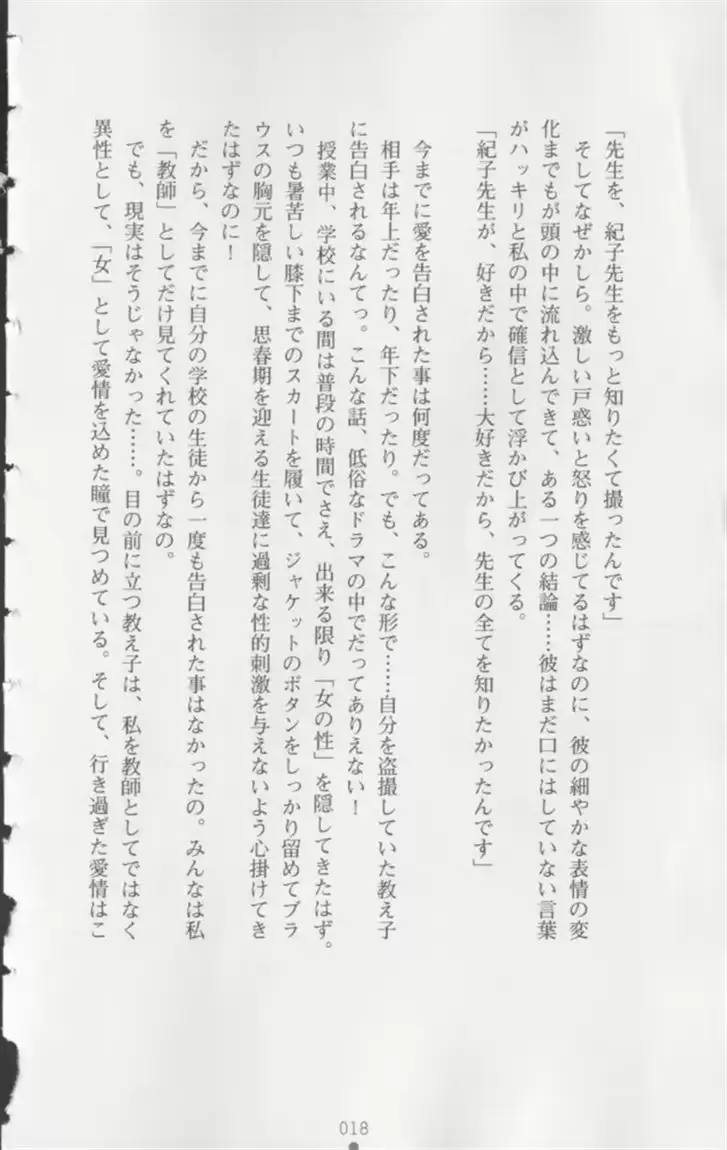 「先生を、紀子先生をもっと知りたくて撮ったんです」
　そしてなぜかしら。激しい戸惑いと怒りを感じてるはずなのに、彼の細やかな表情の変
化までもが頭の中に流れ込んできて、ある一つの結論……彼はまだ口にはしていない言葉
がハッキリと私の中で確信として浮かび上がってくる。
「紀子先生が、好きだから……大好きだから、先生の全てを知りたかったんです」
　今までに愛を告白された事は何度だってある。
　相手は年上だったり、年下だったり。でも、こんな形で……自分を盗撮していた教え子
に告白されるなんてっ。こんな話、低俗なドラマの中でだってありえない！
　授業中、学校にいる間は普段の時間でさえ、出来る限り「女の性」を隠してきたはず。
いつも暑苦しい膝下までのスカートを履いて、ジャケットのボタンをしっかり留めてブラ
ウスの胸元を隠して、思春期を迎える生徒達に過剰な性的刺激を与えないよう心掛けてき
たはずなのに！
　だから、今までに自分の学校の生徒から一度も告白された事はなかったの。みんなは私
を「教師」としてだけ見てくれていたはずなの。
　でも、現実はそうじゃなかった……。目の前に立つ教え子は、私を教師としてではなく
異性として、「女」として愛情を込めた瞳で見つめている。そして、行き過ぎた愛情はこ
018